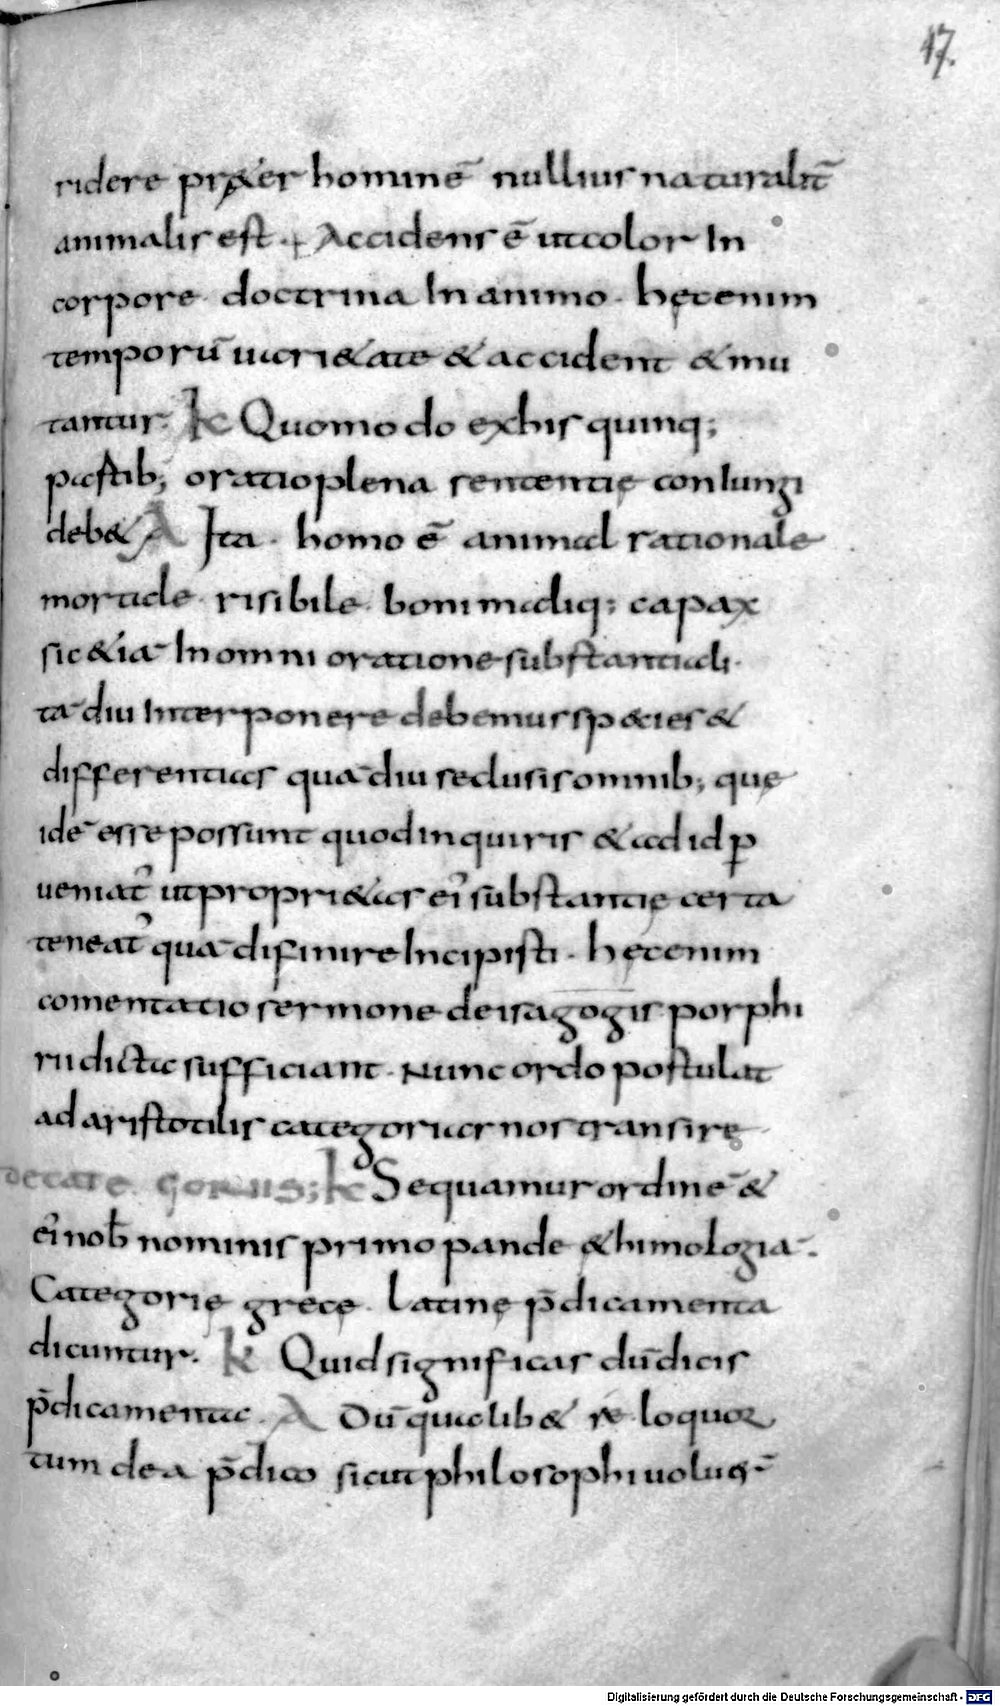 17.
ridere pr&er hominē nullius naturalit̄
animalis est. Accidens ē ut color In
corpore doctrina In animo. hęc enim
temporū uari&ate & accident & mu
tantur. K Quomodo ex his quinq;
partib; oratio plena sententię coniungi
deb& A Ita. homo ē animal rationale
mortale. risibile. boni maliq; capax
sic &iā In omni oratione substantiali.
tādiu Interponere debemus sp&cies &
differentias quādiu seclusis omnib; quę
idē esse possunt quod inquiris & ad id ꝑ
ueniat᾽ ut propri&as ei᾽ substantię certa
teneat᾽ quā difinire Incipisti. hęc enim
comentatio sermone de isagogis porphi
rii dicta sufficiant. Nunc ordo postulat
ad aristotilis categorias nos transirę
De CATEGORIIS; K Sequamur ordinē &
ei᾽ nob̄ nominis primo pande &himologiā.
Categorię gręcę. Latinę p̄dicamenta
dicuntur. K Quid significas dū dicis
p̄dicamenta. A Dū qualib& re loquor
tum de a p̄dico sicut philosophi uoluer̄
Digitalisierung gefördert durch die Deutsche Forschungsgemeinschaft - DFG